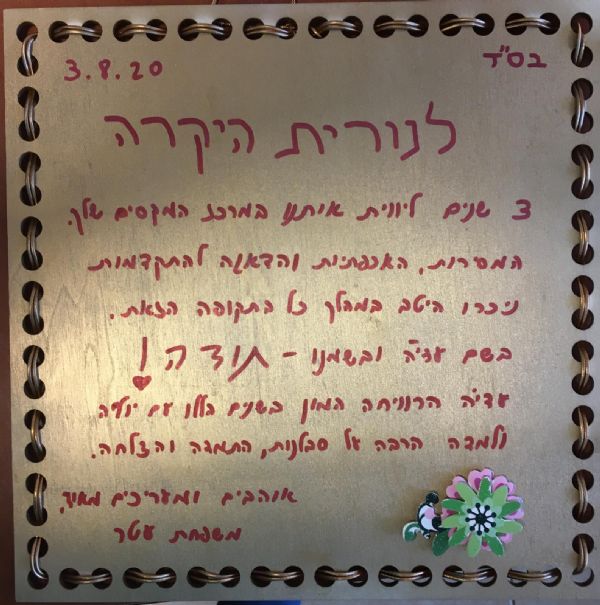 בס"ד
3.8.20
לנורית היקרה
3 שנים ליווית איתנו במרכז המקסים שלך.
המסירות, האכפתיות והדאגה להתקדמות
ניכרו היטב במהלך כל התקופה הזאת.
בשם עדיה ובשמנו - תודה!
עדיה הרוויחה המון בשנים הללו עם יוליה
ולמדה הרבה על סבלנות, התמדה והצלחה.
אוהבים ומעריכים מאוד,
משפחת עטר